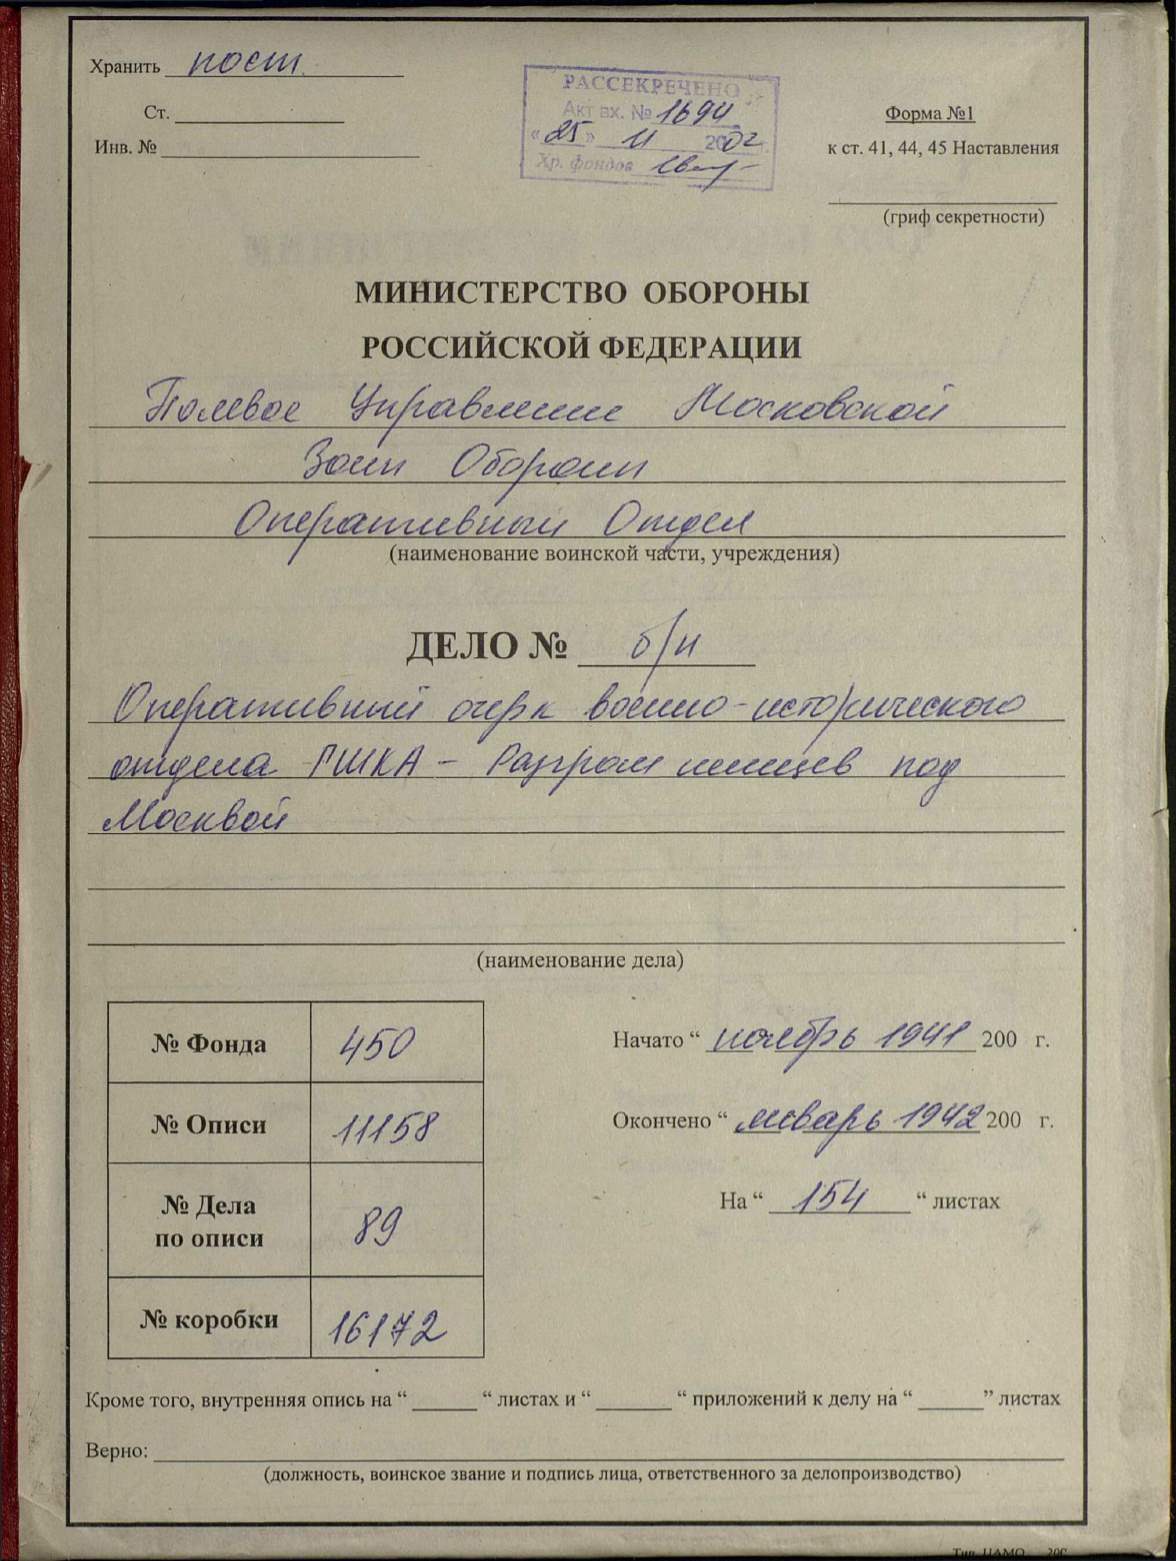 Хранить пост.
Ст.
Инв. №
РАССЕКРЕЧЕНО
Акт вх. № 1694
«25» 11 2002 г.
Хр. фондов
Форма №1
к ст. 41, 44, 45 Наставления
(гриф секретности)
МИНИСТЕРСТВО ОБОРОНЫ
РОССИЙСКОЙ ФЕДЕРАЦИИ
Полевое Управление Московской
Зоны Обороны
Оперативный Отдел
(наименование воинской части, учреждения)
ДЕЛО № б/н
Оперативный очерк военно-исторического
отдела ГШКА – Разгром немцев под
Москвой
(наименование дела)
№ Фонда 450
№ Описи 11158
№ Дела
по описи 89
№ коробки 16172
Начато “ ноябрь 1941 200 г.
Окончено “ январь 1942 200 г.
На “ 154 “ листах
Кроме того, внутренняя опись на “ “ листах и “ “ приложений к делу на “ ” листах
Верно:
(должность, воинское звание и подпись лица, ответственного за делопроизводство)
Тип. ЦАМО 200